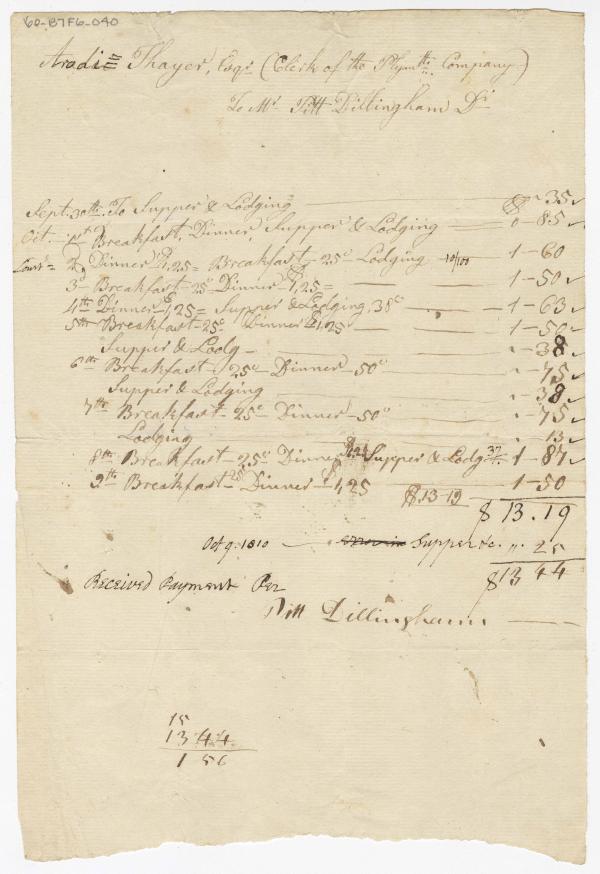 60-B7F6-040
Aradi= Thayer, Esqr. (Clerk of the Plymth. Company)
To Mr. Pitt Dillingham Dr.
Sept. 30th. To Supper & Lodging $ " 35
Oct. 1st Breakfast, Dinner, Supper & Lodging 0-85
2d Dinner 1,25= Breakfast- 25c Lodging 10/100 1-60
3d Breakfast- 25c Dinner- 1,25= 1-50
4th Dinner 1,25= Supper & Lodging, 38c 1-63
5th Breakfast- 25c Dinner 1,25 1-50
Supper & Lodg- "-38
6th Breakfast- 25c- Dinner- 50c "-75
Supper & Lodging "-38
7th Breakfast- 25c- Dinner- 50c "-75
Lodging " 13
8th Breakfast- 25c Dinner $1,25 Supper & Lodg 37 1-87
9th Breakfast- 25 Dinner- $1,25 $13-19 1-50
$13.19
Oct 9. 1810 Supper &c. ". 25
$13 44
Received Payment Per
Pitt Dillingham
15
13 44
1 56